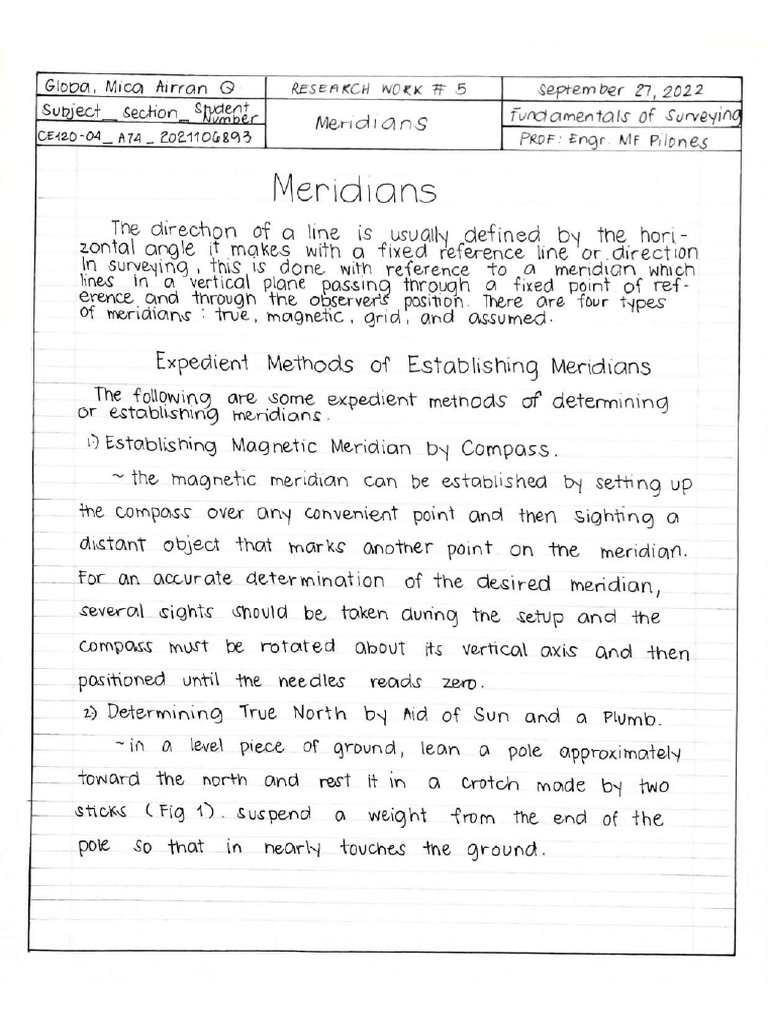 Globa, Mica Airran Q
RESEARCH WORK # 5
September 27, 2022
Subject_ section_ Student Number
Meridians
Fundamentals of Surveying
CE120-04_ A74_ 2021106893
PROF: Engr. MF Pilones
Meridians
The direction of a line is usually defined by the hori-
zontal angle it makes with a fixed reference line or direction
In surveying, this is done with reference to a meridian which
lines in a vertical plane passing through a fixed point of ref-
erence and through the observer's position. There are four types
of meridians : true, magnetic, grid, and assumed.
Expedient Methods of Establishing Meridians
The following are some expedient methods of determining
or establishing meridians.
1) Establishing Magnetic Meridian by Compass.
~ the magnetic meridian can be established by setting up
the compass over any convenient point and then sighting a
distant object that marks another point on the meridian.
For an accurate determination of the desired meridian,
several sights should be taken during the setup and the
compass must be rotated about its vertical axis and then
positioned until the needles reads zero.
2) Determining True North by Aid of Sun and a Plumb.
~in a level piece of ground, lean a pole approximately
toward the north and rest it in a crotch made by two
sticks (Fig 1). suspend a weight from the end of the
pole so that in nearly touches the ground.